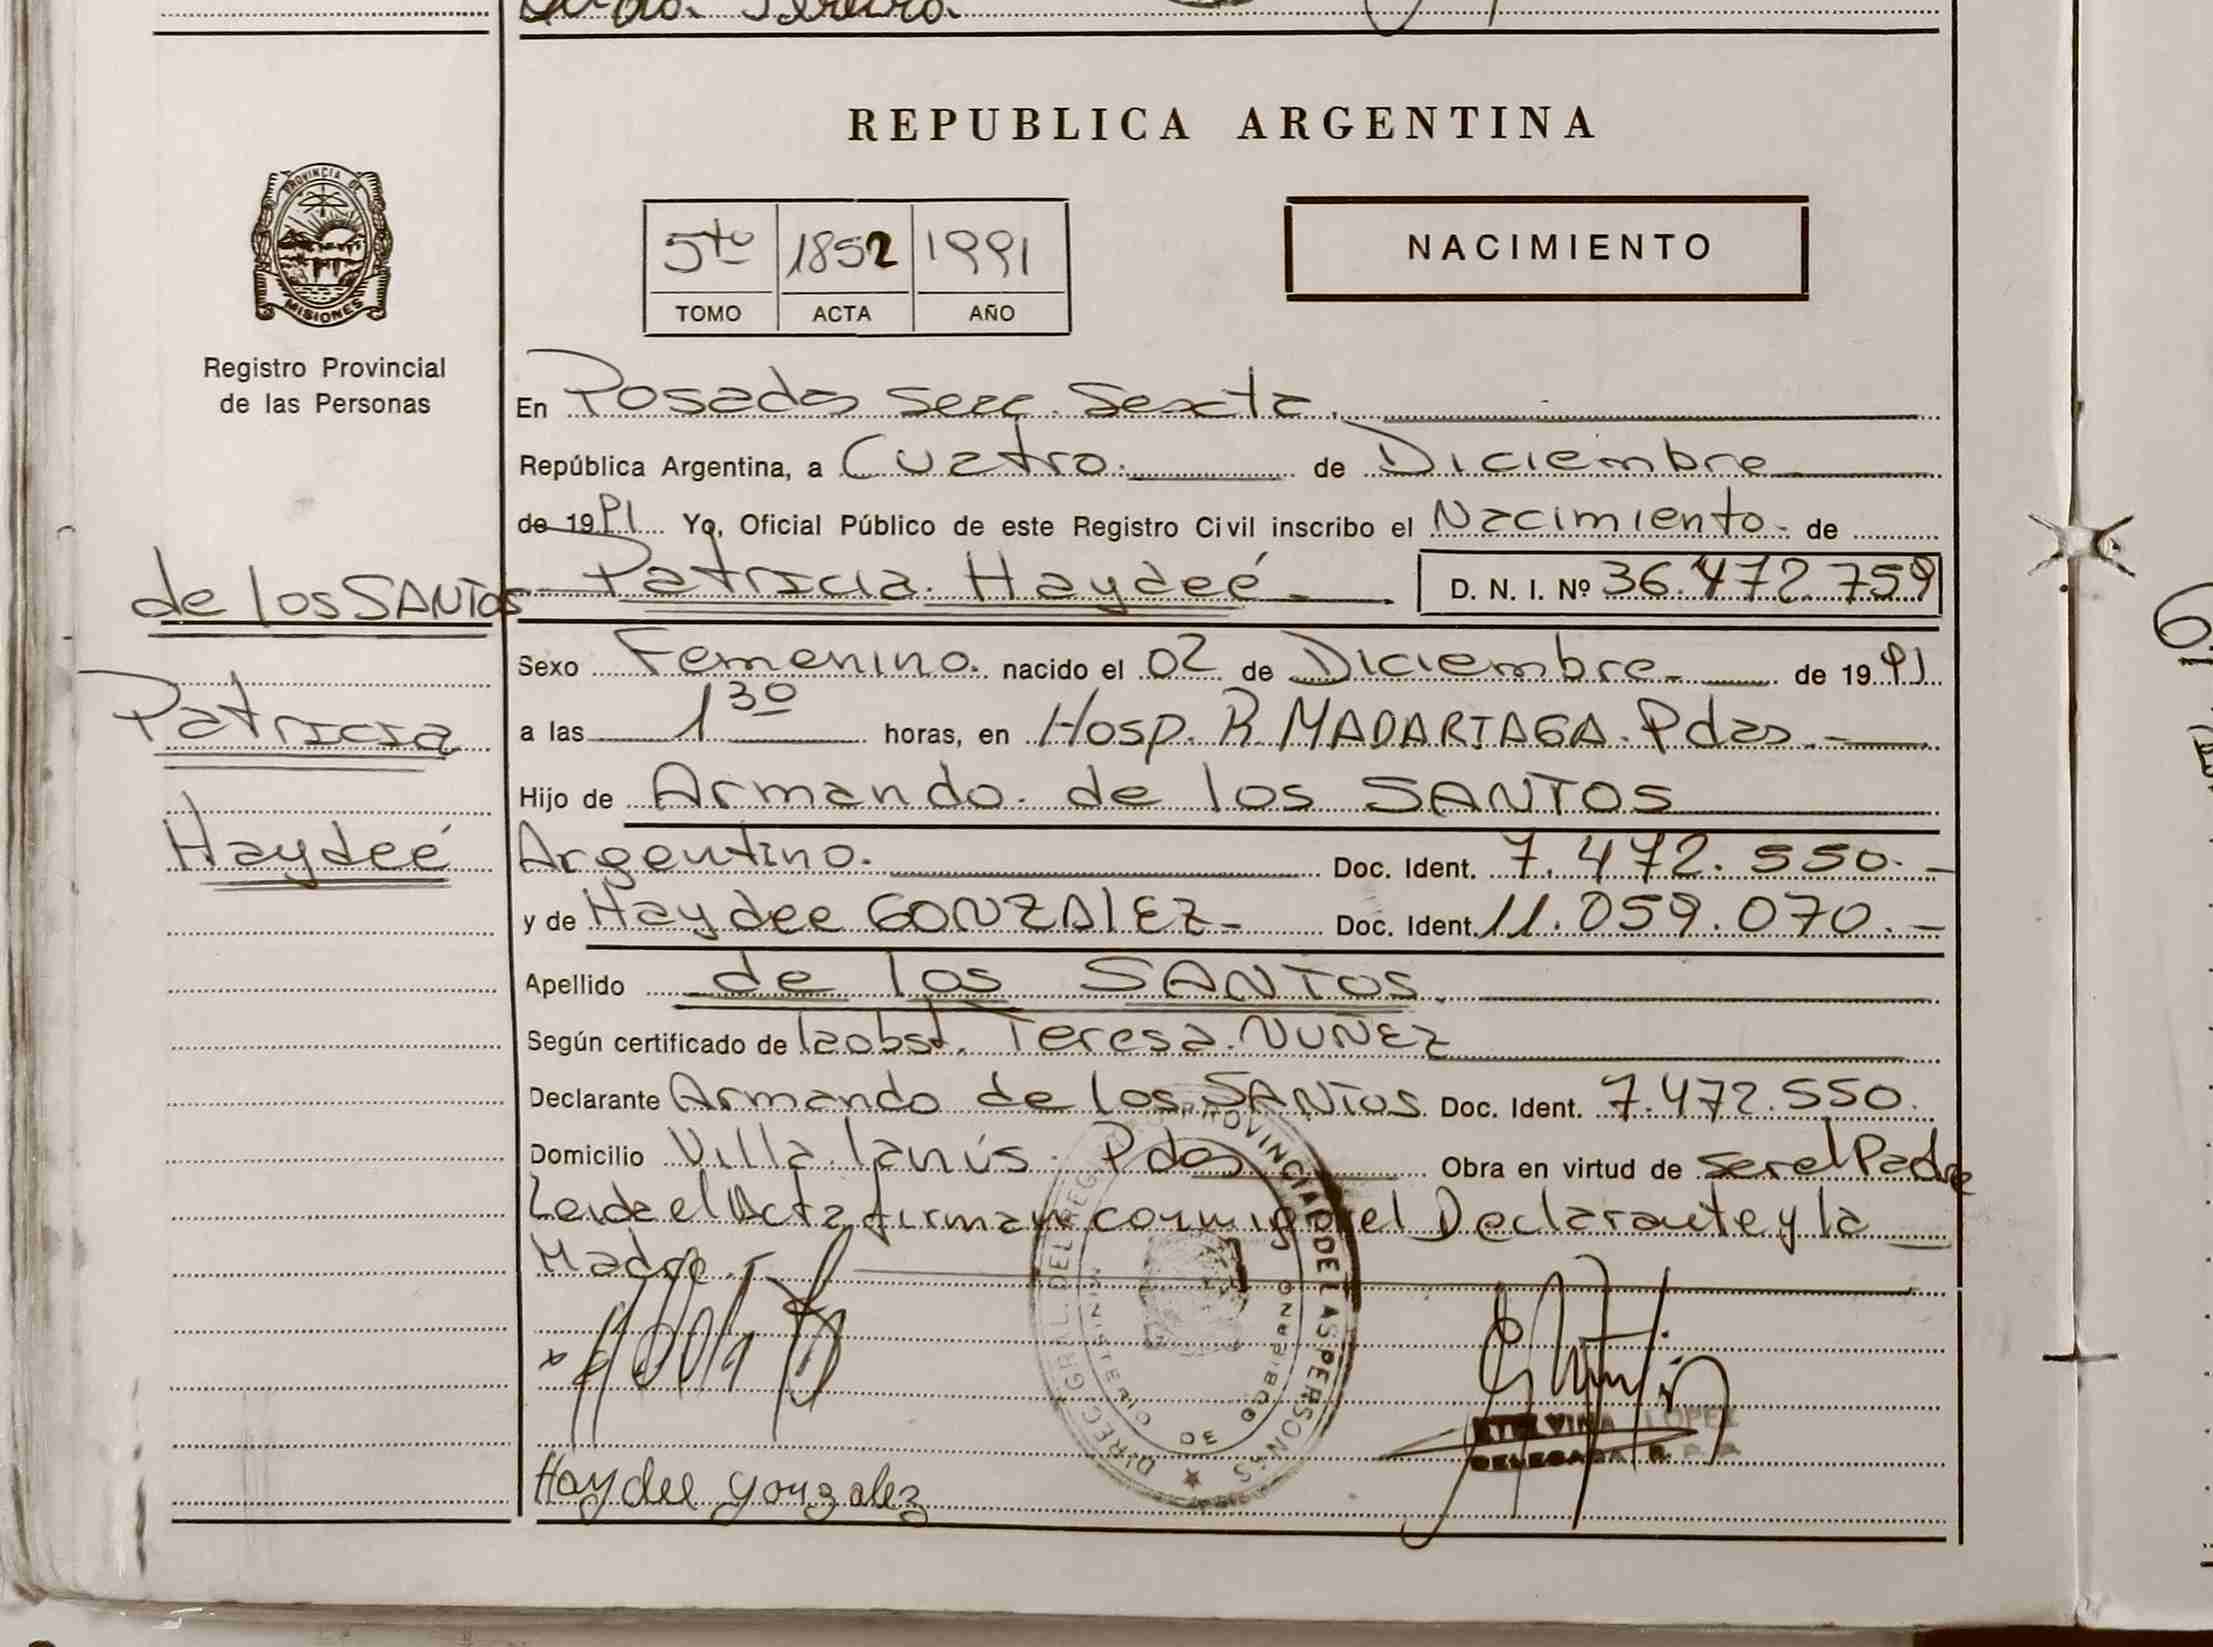 REPUBLICA ARGENTINA
PROVINCIA DE
MISIONES
Registro Provincial
de las Personas
5to 1852 1991
TOMO ACTA AÑO
NACIMIENTO
En Posadas Secc. Sexta.
República Argentina, a Cuatro. de Diciembre
de 1991 Yo, Oficial Público de este Registro Civil inscribo el Nacimiento. de
de los SANTOS
Patricia
Haydeé
Patricia Haydeé. D. N. I. Nº 36.472.759
Sexo Femenino. nacido el 02 de Diciembre de 1991
a las 1 30 horas, en Hosp. R. MADARIAGA. Pdas.
Hijo de Armando de los SANTOS
Argentino. Doc. Ident. 7.472.550.-
y de Haydee GONZALEZ- Doc. Ident. 11.059.070.-
Apellido de los SANTOS.
Según certificado de la obst. Teresa NUÑEZ
Declarante Armando de los SANTOS Doc. Ident. 7.472.550.
Domicilio Villa Lanús. Pdas Obra en virtud de ser el Padre
Leida el Acta firman conmigo el Declarante y la
Madre.-
DIRECC. GRAL. DEL REG. PROVINCIAL DE LAS PERSONAS
MINISTERIO DE GOBIERNO
ETELVINA LOPEZ
DELEGADA R. P. P.
Haydee gonzalez